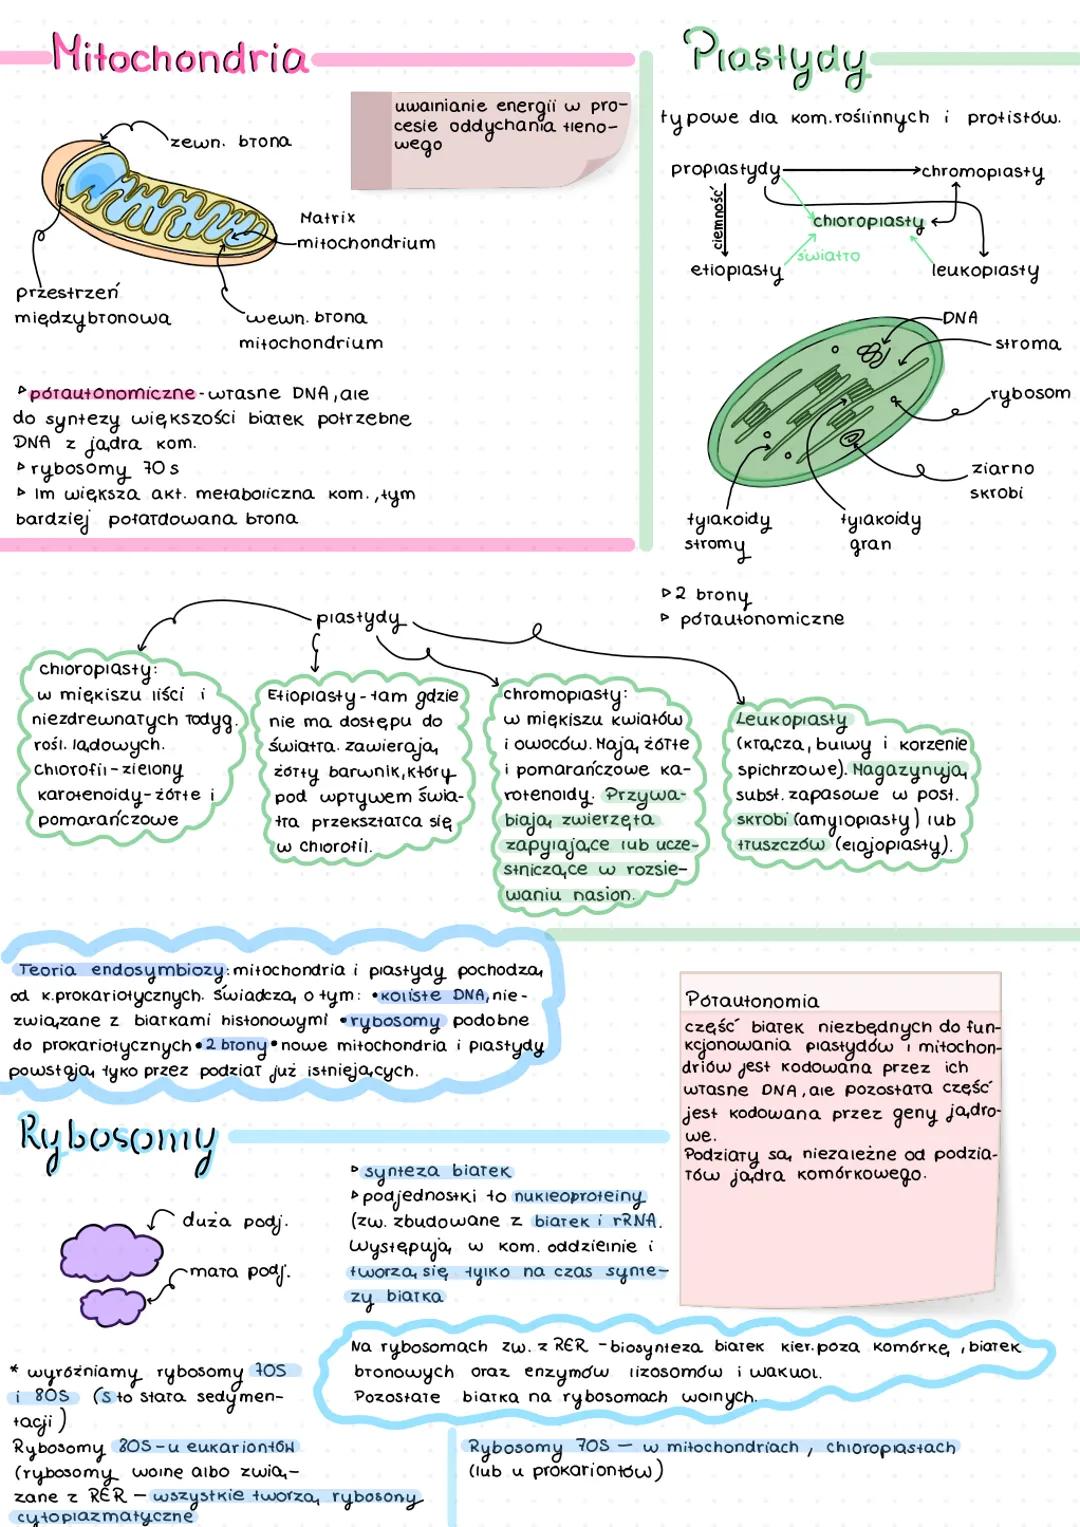 Mitochondria
uwalnianie energii w pro-
cesie oddychania tleno-
wego
zewn. błona
Matrix
mitochondrium
przestrzeń
międzybłonowa
wewn. błona
mitochondrium
▹półautonomiczne - własne DNA, ale
do syntezy większości białek potrzebne
DNA z jądra kom.
▹rybosomy 70s
▹ Im większa akt. metaboliczna kom., tym
bardziej pofałdowana błona
Plastydy
typowe dla kom. roślinnych i protistów.
proplastydy
chromoplasty
ciemność
chloroplasty
światło
etioplasty
leukoplasty
DNA
stroma
rybosom
ziarno
skrobi
tylakoidy
stromy
tylakoidy
gran
▹2 błony
▹ półautonomiczne
plastydy
chloroplasty:
w miękiszu liści i
niezdrewnałych łodyg.
rośl. lądowych.
Chlorofil - zielony
karotenoidy - żółte i
pomarańczowe
Etioplasty - tam gdzie
nie ma dostępu do
światła. zawierają
żółty barwnik, który
pod wpływem świa-
tła przekształca się
w chlorofil.
chromoplasty:
w miękiszu kwiatów
i owoców. Mają żółte
i pomarańczowe ka-
rotenoidy. Przywa-
biają zwierzęta
zapylające lub ucze-
stniczące w rozsie-
waniu nasion.
Leukoplasty
(kłącza, bulwy i korzenie
spichrzowe). Magazynują
subst. zapasowe w post.
skrobi (amyloplasty) lub
tłuszczów (elajoplasty).
Teoria endosymbiozy: mitochondria i plastydy pochodzą
od k. prokariotycznych. Świadczą o tym: •koliste DNA, nie-
związane z białkami histonowymi •rybosomy podobne
do prokariotycznych •2 błony •nowe mitochondria i plastydy
powstają tyko przez podział już istniejących.
Półautonomia
część białek niezbędnych do fun-
kcjonowania plastydów i mitochon-
driów jest kodowana przez ich
własne DNA, ale pozostała część
jest kodowana przez geny jądro-
we.
Podziały są niezależne od podzia-
łów jądra komórkowego.
Rybosomy
duża podj.
mała podj.
▹ synteza białek
▹podjednostki to nukleoproteiny
(zw. zbudowane z białek i rRNA.
Występują w kom. oddzielnie i
tworzą się tylko na czas synte-
zy białka
Na rybosomach zw. z RER - biosynteza białek kier. poza komórkę, białek
błonowych oraz enzymów lizosomów i wakuol.
Pozostałe białka na rybosomach wolnych.
* wyróżniamy rybosomy 70S
i 80S (S to stała sedymen-
tacji)
Rybosomy 80S - u eukariontów
(rybosomy wolne albo zwią-
zane z RER - wszystkie tworzą rybosony
cytoplazmatyczne
Rybosomy 70S — w mitochondriach, chloroplastach
(lub u prokariontów)